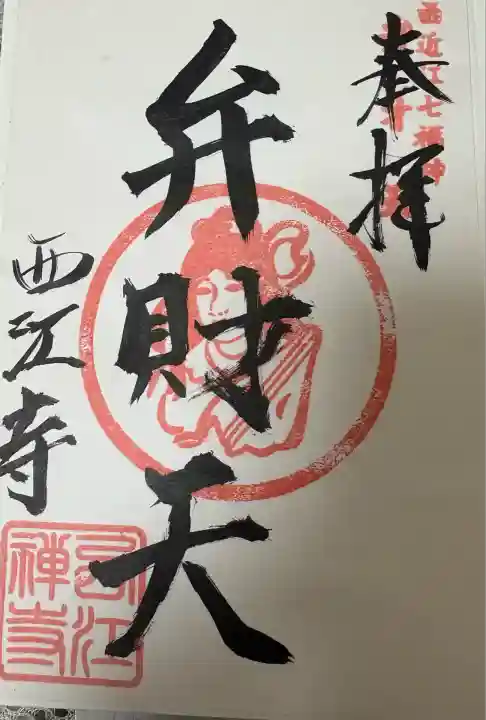 西近江七福神
奉拝
弁財天
西江寺
西江禅寺